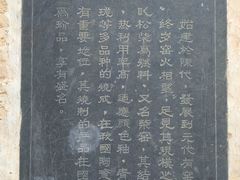 始建於陳代，發展到元代有窑
終歲窑火相望，足見其規模之
以松柴為燃料，又名柴窑，其結
熱利用率高，適應顏色釉、青
瓏等多品种的燒成，在我國陶瓷
有重要地位，其燒制的瓷品在國
為珍品，享有盛名。